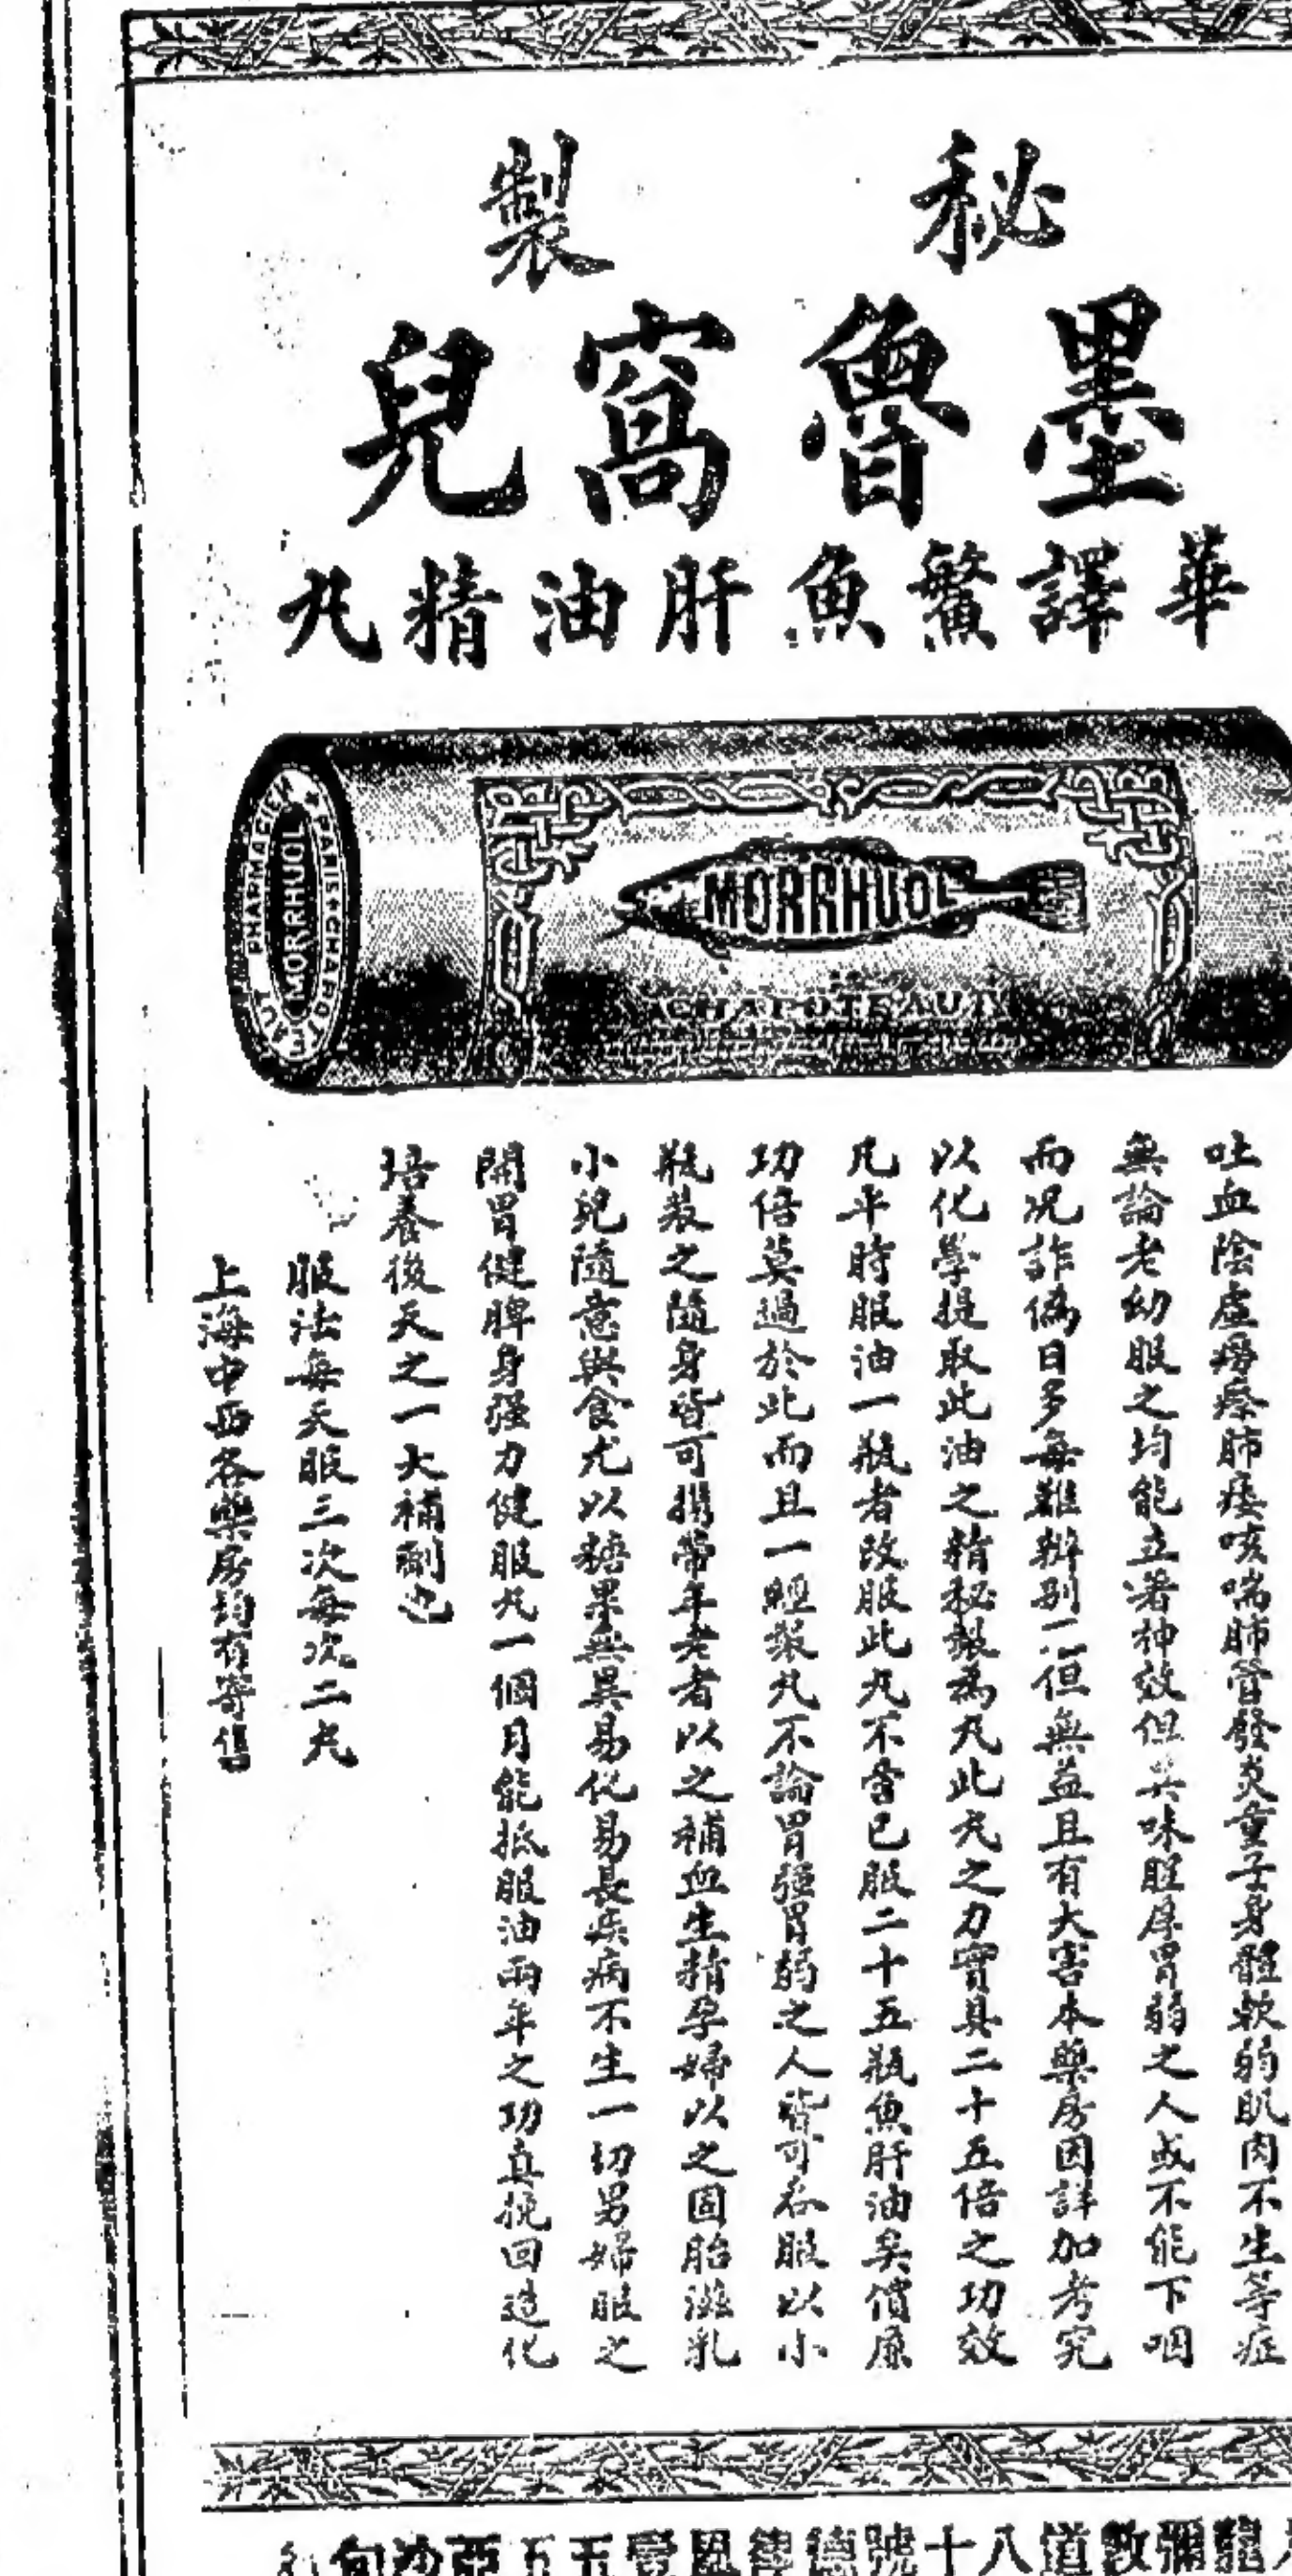 秘製
墨魯窩兒
華譯鰵魚肝油精丸
PHARMACIEN ★ PARIS ★ CHAPOTEAUT
MORRHUOL
MORRHUOL
CHAPOTEAUT
吐血陰虛癆瘵肺痿咳喘肺管發炎童子身體軟弱肌肉不生等症
無論老幼服之均能立著神效但其味腥厚胃弱之人或不能下咽
而况詐偽日多每難辨别不但無益且有大害本藥房因詳加考究
以化學提取此油之精秘製為丸此丸之力實具二十五倍之功效
凡平時服油一瓶者改服此丸不啻已服二十五瓶魚肝油矣價廉
功倍莫過於此而且一經製丸不論胃强胃弱之人皆可吞服以小
瓶裝之隨身皆可携帶年老者以之補血生精孕婦以之固胎滋乳
小兒隨意與食尤以糖果無異易化易長疾病不生一切男婦服之
開胃健脾身强力健服丸一個月能抵服油兩年之功真挽回造化
培養後天之一大補劑也
服法每天服三次每次二丸
上海中西各藥房均有寄售
龍彌敦道八十號德律風壹五五亞沙甸